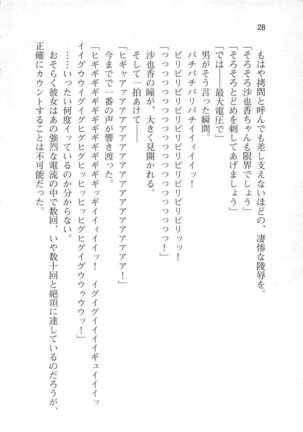 28
もはや拷問と呼んでも差し支えないほどの、凄惨な陵辱を。
「そろそろ沙也香ちゃんも限界でしょう」
「そろそろとどめを刺してあげましょう」
「では――最大電圧で」
男がそう言った瞬間。
バチバチバリバチイイィイイイッ！
ビリビリビリビリビリビリビリッ！
「っっっっっっっっっっっっっっっ！」
沙也香の瞳が、大きく見開かれる。
そして一拍あけて――
「ヒギャァァアアアアアアアアアアアアアアアアア！」
今までで一番の声が響き渡った。
「ヒギギギギギギギギギッギイイィイイッ！　イグイグイイイイギュイイイッ
イイグウウイグヒッヒッヒッヒグヒグイグウウウゥウッ！」
……いったい何度イッているのか分からない。
おそらく彼女はあの強烈な電流の中で数回、いや数十回と絶頂に達しているのだろうが、
正確にカウントすることは不可能だった。